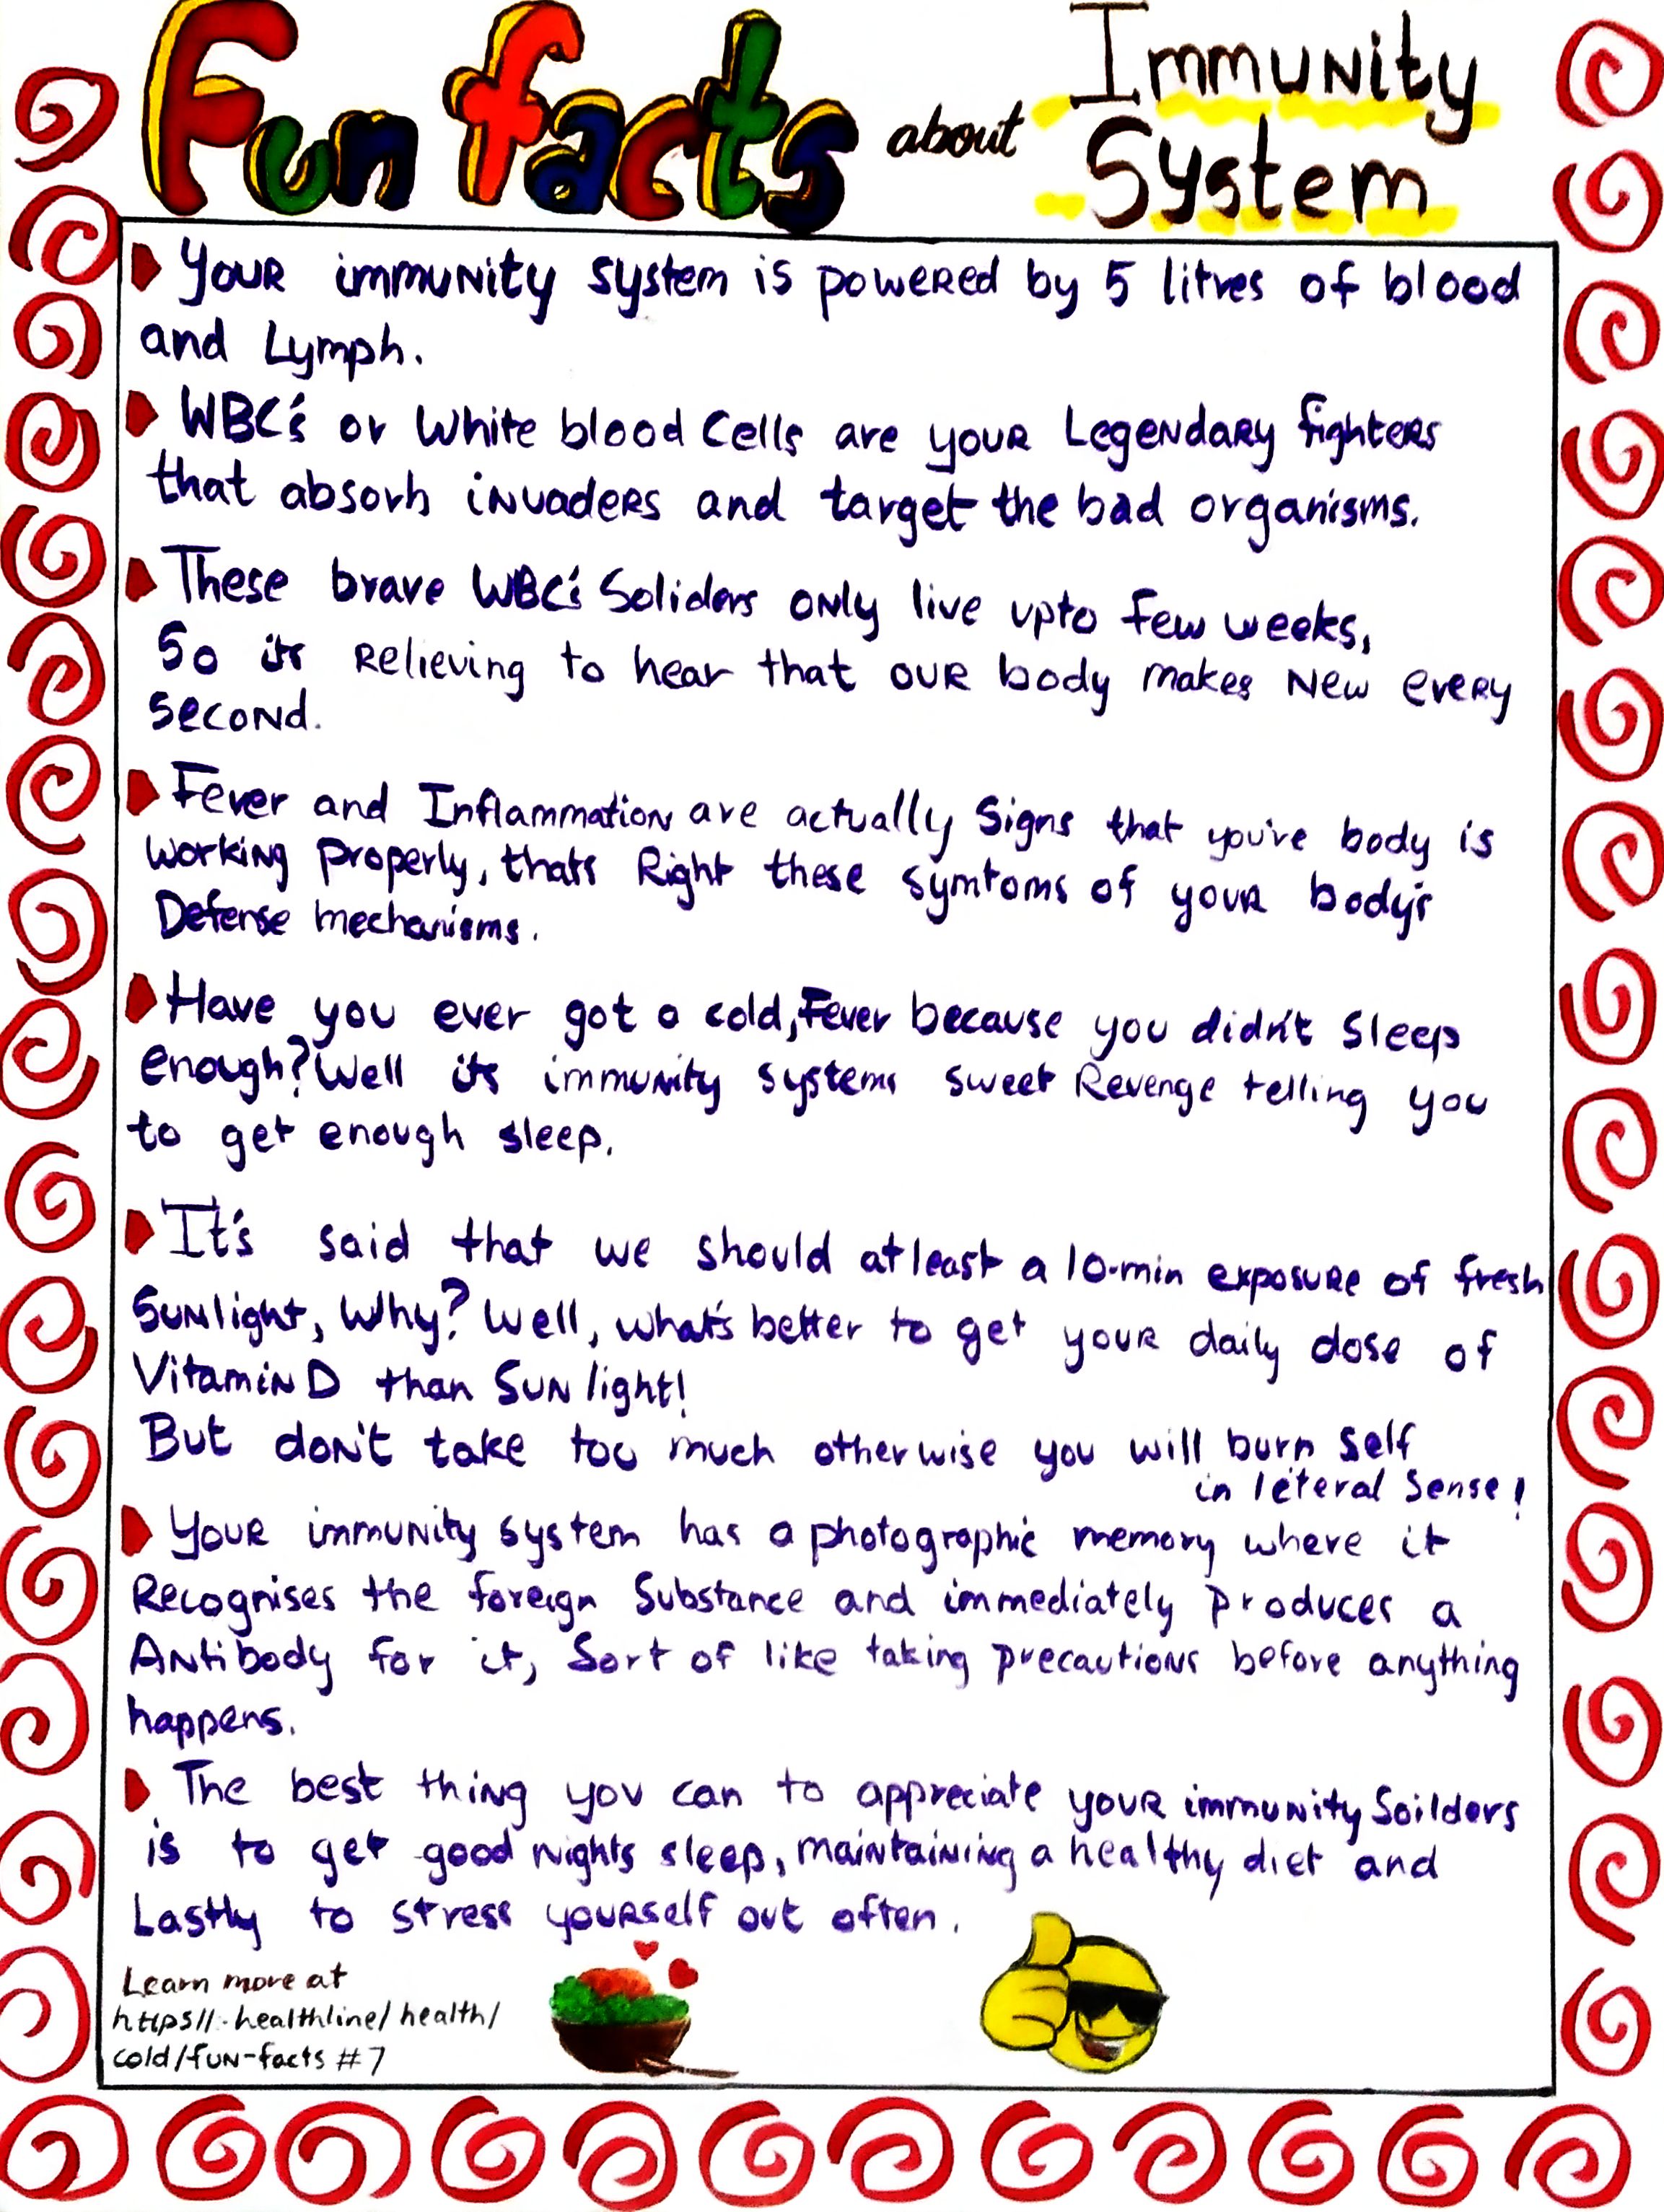 Fun facts about Immunity System
Your immunity system is powered by 5 litres of blood
and Lymph.
WBC's or White blood Cells are your Legendary fighters
that absorb invaders and target the bad organisms.
These brave WBC's Soliders only live upto few weeks,
So its Relieving to hear that our body makes New every
Second.
Fever and Inflammation are actually Signs that you've body is
Working Properly, thats Right these Symtoms of your body's
Defense mechanisms.
Have you ever got a cold, Fever because you didn't Sleep
enough? Well its immunity systems sweet Revenge telling you
to get enough sleep.
It's said that we should atleast a 10-min exposure of fresh
Sunlight, Why? Well, what's better to get your daily dose of
Vitamin D than Sunlight!
But don't take too much otherwise you will burn Self
in leteral Sense!
Your immunity system has a photographic memory where it
Recognises the foreign Substance and immediately Produces a
Antibody for it, Sort of like taking precautions before anything
happens.
The best thing you can to appreciate your immunity Soilders
is to get good nights sleep, maintaining a healthy diet and
Lastly to stress yourself out often.
Learn more at
https//:-healthline/health/
cold/fun-facts #7